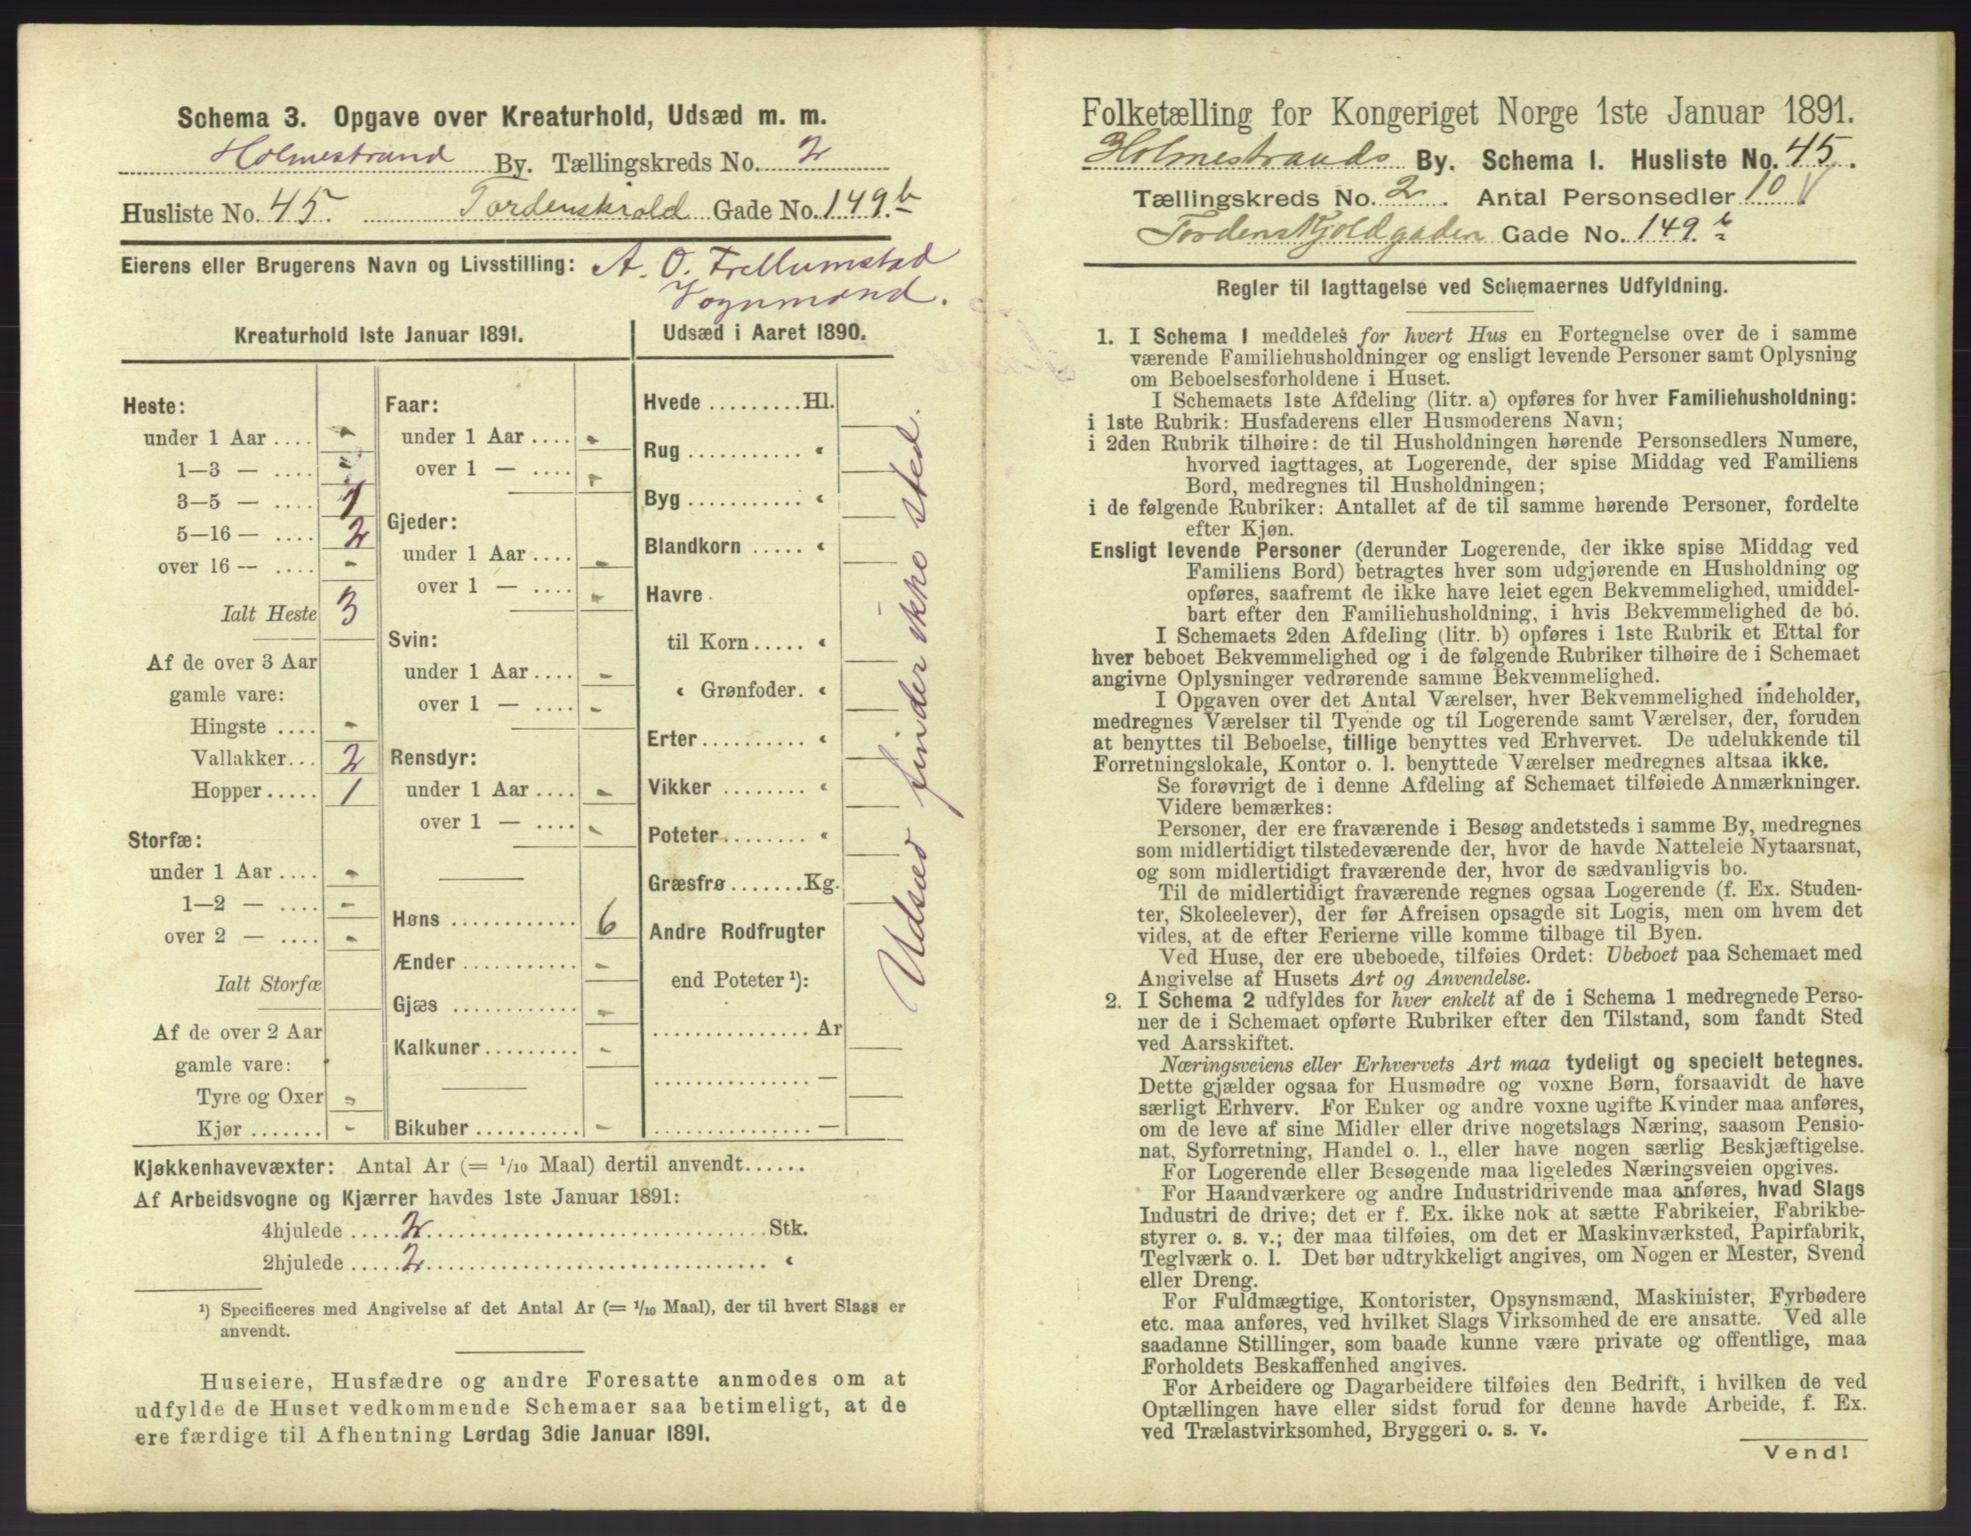 Schema 3. Opgave over Kreaturhold, Udsæd m. m.
Holmestrand By. Tællingskreds No. 2
Husliste No. 45. Tordenskiold Gade No. 149.b
Eierens eller Brugerens Navn og Livsstilling: A. O. Trellumstad
Vognmand.
Kreaturhold 1ste Januar 1891.
Heste:
under 1 Aar .... -
1—3 — .... "
3—5 — .... 1
5—16 — .... 2
over 16 — .... -
Ialt Heste 3
Af de over 3 Aar
gamle vare:
Hingste .... -
Vallakker... 2
Hopper ..... 1
Storfæ:
under 1 Aar .... -
1—2 — .... -
over 2 — .... -
Ialt Storfæ
Af de over 2 Aar
gamle vare:
Tyre og Oxer -
Kjør ....... -
Faar:
under 1 Aar .... -
over 1 — .... -
Gjeder:
under 1 Aar .... -
over 1 — .... -
Svin:
under 1 Aar .... -
over 1 — .... -
Rensdyr:
under 1 Aar .... -
over 1 — .... -
Høns ............ 6
Ænder ........... -
Gjæs ............ -
Kalkuner ......... -
Bikuber .......... -
Udsæd i Aaret 1890.
Hvede ......... Hl.
Rug ........... “
Byg ........... “
Blandkorn ..... “
Havre
til Korn ..... “
“ Grønfoder. “
Erter .......... “
Vikker ........ “
Poteter ........ “
Græsfrø ....... Kg.
Andre Rodfrugter
end Poteter ¹):
............... Ar
............... —
............... —
Udsæd finder ikke sted.
Kjøkkenhavevæxter: Antal Ar (= 1/10 Maal) dertil anvendt......
Af Arbeidsvogne og Kjærrer havdes 1ste Januar 1891:
4hjulede ..... 2 ..... Stk.
2hjulede ..... 2 ..... “
¹) Specificeres med Angivelse af det Antal Ar (= 1/10 Maal), der til hvert Slags er
anvendt.
Huseiere, Husfædre og andre Foresatte anmodes om at
udfylde de Huset vedkommende Schemaer saa betimeligt, at de
ere færdige til Afhentning Lørdag 3die Januar 1891.
Folketælling for Kongeriget Norge 1ste Januar 1891.
Holmestrands By. Schema I. Husliste No. 45.
Tællingskreds No. 2. Antal Personsedler 10
Tordenskjoldgaden Gade No. 149.b
Regler til Iagttagelse ved Schemaernes Udfyldning.
1. I Schema 1 meddeles for hvert Hus en Fortegnelse over de i samme
værende Familiehusholdninger og ensligt levende Personer samt Oplysning
om Beboelsesforholdene i Huset.
I Schemaets 1ste Afdeling (litr. a) opføres for hver Familiehusholdning:
i 1ste Rubrik: Husfaderens eller Husmoderens Navn;
i 2den Rubrik tilhøire: de til Husholdningen hørende Personsedlers Numere,
hvorved iagttages, at Logerende, der spise Middag ved Familiens
Bord, medregnes til Husholdningen;
i de følgende Rubriker: Antallet af de til samme hørende Personer, fordelte
efter Kjøn.
Ensligt levende Personer (derunder Logerende, der ikke spise Middag ved
Familiens Bord) betragtes hver som udgjørende en Husholdning og
opføres, saafremt de ikke have leiet egen Bekvemmelighed, umiddel-
bart efter den Familiehusholdning, i hvis Bekvemmelighed de bo.
I Schemaets 2den Afdeling (litr. b) opføres i 1ste Rubrik et Ettal for
hver beboet Bekvemmelighed og i de følgende Rubriker tilhøire de i Schemaet
angivne Oplysninger vedrørende samme Bekvemmelighed.
I Opgaven over det Antal Værelser, hver Bekvemmelighed indeholder,
medregnes Værelser til Tyende og til Logerende samt Værelser, der, foruden
at benyttes til Beboelse, tillige benyttes ved Erhvervet. De udelukkende til
Forretningslokale, Kontor o. l. benyttede Værelser medregnes altsaa ikke.
Se forøvrigt de i denne Afdeling af Schemaet tilføiede Anmærkninger.
Videre bemærkes:
Personer, der ere fraværende i Besøg andetsteds i samme By, medregnes
som midlertidigt tilstedeværende der, hvor de havde Natteleie Nytaarsnat,
og som midlertidigt fraværende der, hvor de sædvanligvis bo.
Til de midlertidigt fraværende regnes ogsaa Logerende (f. Ex. Studen-
ter, Skoleelever), der før Afreisen opsagde sit Logis, men om hvem det
vides, at de efter Ferierne ville komme tilbage til Byen.
Ved Huse, der ere ubeboede, tilføies Ordet: Ubeboet paa Schemaet med
Angivelse af Husets Art og Anvendelse.
2. I Schema 2 udfyldes for hver enkelt af de i Schema 1 medregnede Perso-
ner de i Schemaet opførte Rubriker efter den Tilstand, som fandt Sted
ved Aarsskiftet.
Næringsveiens eller Erhvervets Art maa tydeligt og specielt betegnes.
Dette gjælder ogsaa for Husmødre og voxne Børn, forsaavidt de have
særligt Erhverv. For Enker og andre voxne ugifte Kvinder maa anføres,
om de leve af sine Midler eller drive nogetslags Næring, saasom Pensio-
nat, Syforretning, Handel o. l., eller have nogen særlig Beskjæftigelse.
For Logerende eller Besøgende maa ligeledes Næringsveien opgives.
For Haandværkere og andre Industridrivende maa anføres, hvad Slags
Industri de drive; det er f. Ex. ikke nok at sætte Fabrikeier, Fabrikbe-
styrer o. s. v.; der maa tilføies, om det er Maskinværksted, Papirfabrik,
Teglværk o. l. Det bør udtrykkeligt angives, om Nogen er Mester, Svend
eller Dreng.
For Fuldmægtige, Kontorister, Opsynsmænd, Maskinister, Fyrbødere
etc. maa anføres, ved hvilket Slags Virksomhed de ere ansatte. Ved alle
saadanne Stillinger, som baade kunne være private og offentlige, maa
Forholdets Beskaffenhed angives.
For Arbeidere og Dagarbeidere tilføies den Bedrift, i hvilken de ved
Optællingen have eller sidst forud for denne havde Arbeide, f. Ex.
ved Trælastvirksomhed, Bryggeri o. s. v.
Vend!